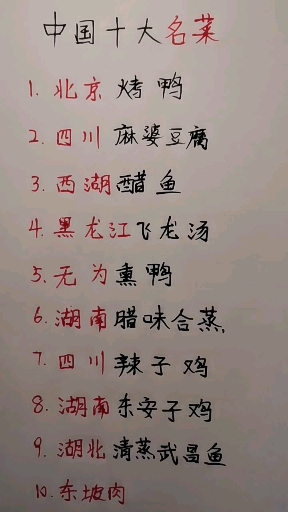 中国十大名菜
1. 北京烤鸭
2. 四川麻婆豆腐
3. 西湖醋鱼
4. 黑龙江飞龙汤
5. 无为熏鸭
6. 湖南腊味合蒸
7. 四川辣子鸡
8. 湖南东安子鸡
9. 湖北清蒸武昌鱼
10. 东坡肉